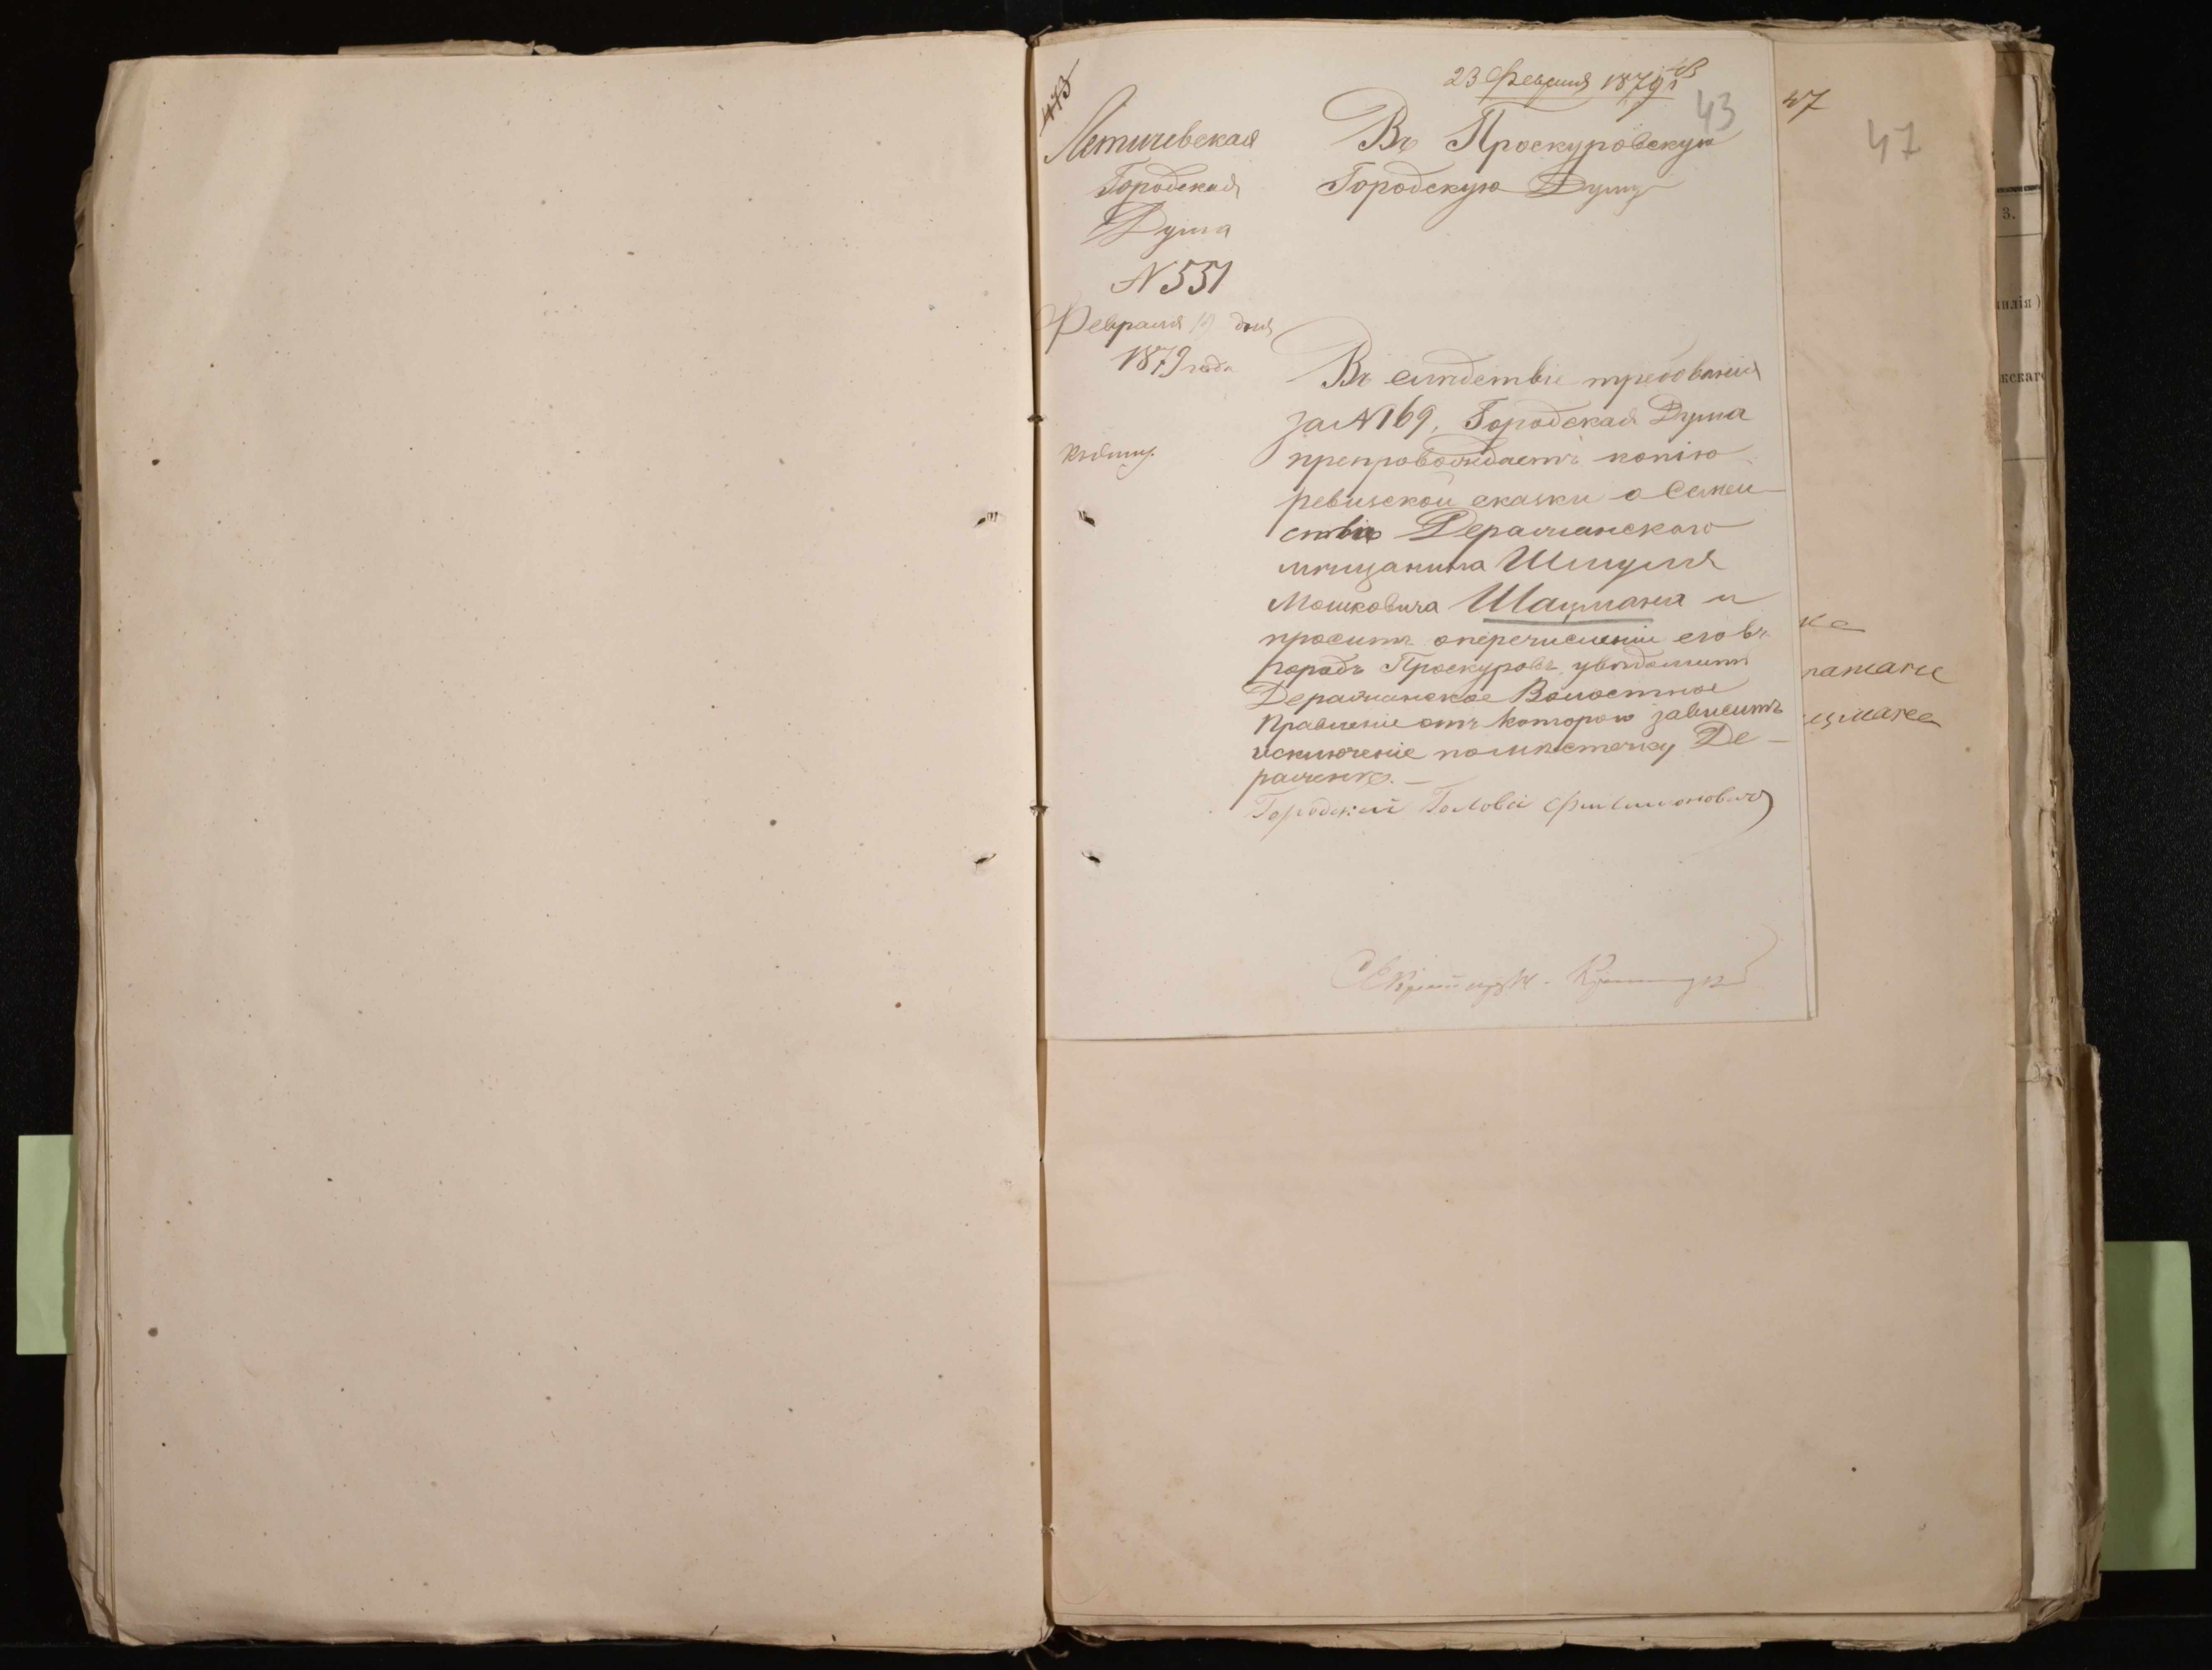 473
23 Февраля 1879 г.
43
47
47
Летичевская
Городская
Дума
N 551
Февраля дня
1879 года
Въ Проскуровскую
Городскую Думу
Въ слѣдствіе требованія
за N 169, Городская Дума
препровождаетъ копію
ревизской сказки о Семей
ствѣ Деражнянскаго
мѣщанина Шмуля
Мошковича Шацмана и
проситъ оперечисленіи его въ
городъ Проскуровъ увѣдомить
Деражнянское Волостное
Правленіе отъ котораго зависитъ
исключеніе помѣстечку Де-
ражнѣ.-
Городской Голова Филимоновичъ
3.
илія)
жскаго